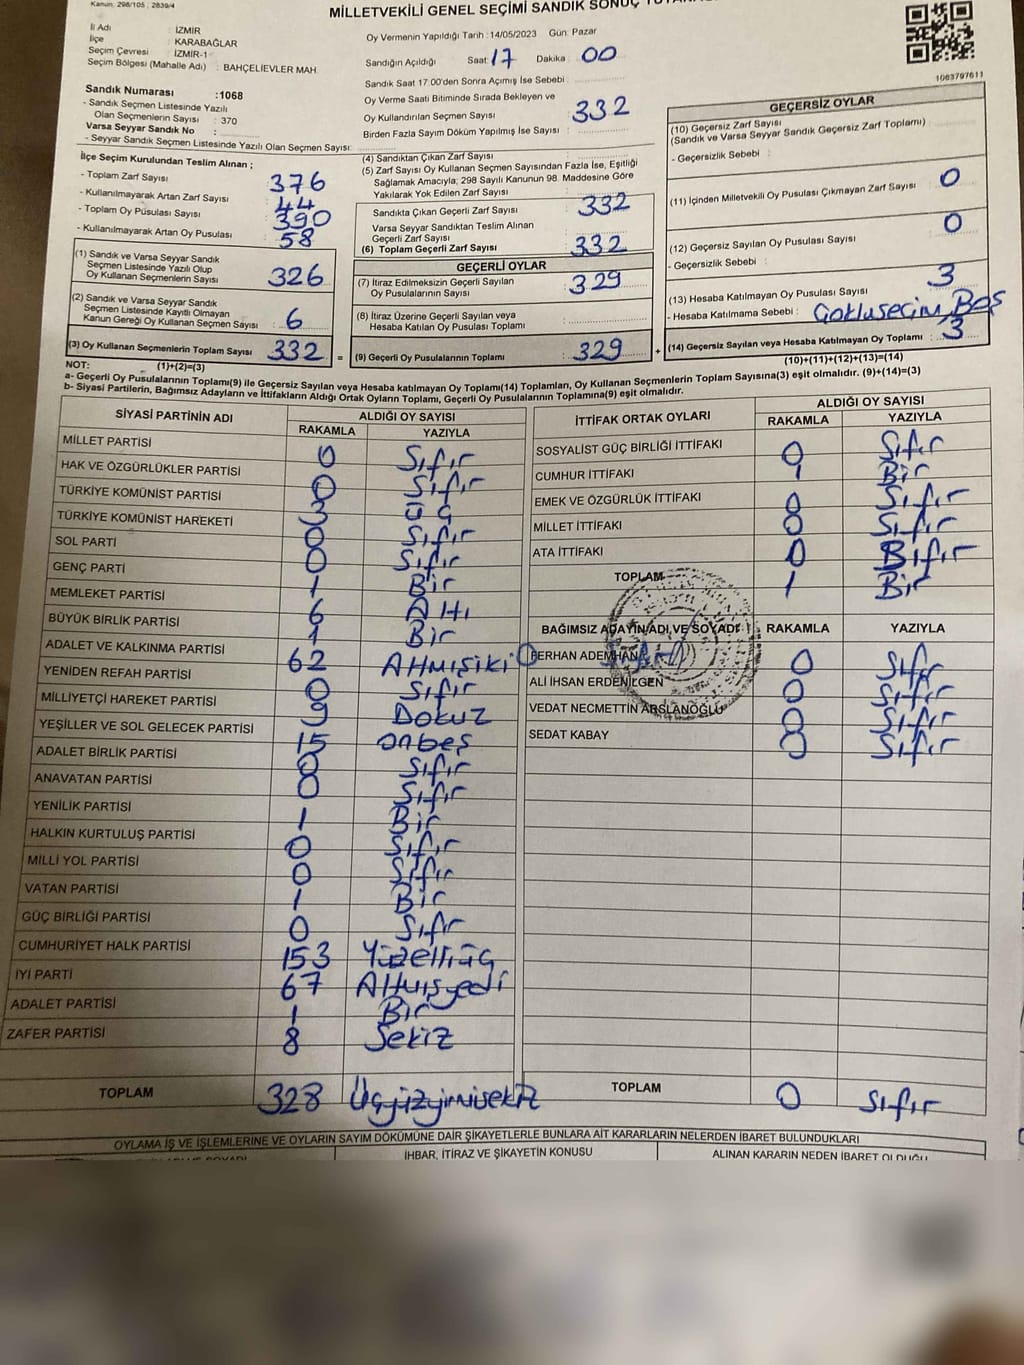 Kanun: 298/105 ; 2839/4
MİLLETVEKİLİ GENEL SEÇİMİ SANDIK SONUÇ
İl Adı : İZMİR
İlçe : KARABAĞLAR
Seçim Çevresi : İZMİR-1
Seçim Bölgesi (Mahalle Adı) : BAHÇELİEVLER MAH.
Oy Vermenin Yapıldığı Tarih : 14/05/2023 Gün: Pazar
Sandığın Açıldığı Saat: 17 Dakika 00
Sandık Saat 17:00'den Sonra Açılmış İse Sebebi :
Oy Verme Saati Bitiminde Sırada Bekleyen ve
Oy Kullandırılan Seçmen Sayısı 332
Birden Fazla Sayım Döküm Yapılmış İse Sayısı :
1063797611
Sandık Numarası :1068
- Sandık Seçmen Listesinde Yazılı
Olan Seçmenlerin Sayısı : 370
Varsa Seyyar Sandık No :
- Seyyar Sandık Seçmen Listesinde Yazılı Olan Seçmen Sayısı:
İlçe Seçim Kurulundan Teslim Alınan ;
- Toplam Zarf Sayısı 376
- Kullanılmayarak Artan Zarf Sayısı 44
- Toplam Oy Pusulası Sayısı 390
- Kullanılmayarak Artan Oy Pusulası 58
(1) Sandık ve Varsa Seyyar Sandık
Seçmen Listesinde Yazılı Olup
Oy Kullanan Seçmenlerin Sayısı 326
(2) Sandık ve Varsa Seyyar Sandık
Seçmen Listesinde Kayıtlı Olmayan
Kanun Gereği Oy Kullanan Seçmen Sayısı 6
(3) Oy Kullanan Seçmenlerin Toplam Sayısı 332 =
(1)+(2)=(3)
(4) Sandıktan Çıkan Zarf Sayısı :
(5) Zarf Sayısı Oy Kullanan Seçmen Sayısından Fazla İse, Eşitliği
Sağlamak Amacıyla; 298 Sayılı Kanunun 98. Maddesine Göre
Yakılarak Yok Edilen Zarf Sayısı :
Sandıkta Çıkan Geçerli Zarf Sayısı 332
Varsa Seyyar Sandıktan Teslim Alınan
Geçerli Zarf Sayısı :
(6) Toplam Geçerli Zarf Sayısı 332
GEÇERLİ OYLAR
(7) İtiraz Edilmeksizin Geçerli Sayılan
Oy Pusulalarının Sayısı : 329
(8) İtiraz Üzerine Geçerli Sayılan veya
Hesaba Katılan Oy Pusulası Toplamı :
(9) Geçerli Oy Pusulalarının Toplamı 329 +
GEÇERSİZ OYLAR
(10) Geçersiz Zarf Sayısı
(Sandık ve Varsa Seyyar Sandık Geçersiz Zarf Toplamı) :
- Geçersizlik Sebebi :
(11) İçinden Milletvekili Oy Pusulası Çıkmayan Zarf Sayısı 0
(12) Geçersiz Sayılan Oy Pusulası Sayısı 0
- Geçersizlik Sebebi :
(13) Hesaba Katılmayan Oy Pusulası Sayısı 3
- Hesaba Katılmama Sebebi : Çokluseçim, Boş
(14) Geçersiz Sayılan veya Hesaba Katılmayan Oy Toplamı : 3
(10)+(11)+(12)+(13)=(14)
NOT:
a- Geçerli Oy Pusulalarının Toplamı(9) ile Geçersiz Sayılan veya Hesaba katılmayan Oy Toplamı(14) Toplamları, Oy Kullanan Seçmenlerin Toplam Sayısına(3) eşit olmalıdır. (9)+(14)=(3)
b- Siyasi Partilerin, Bağımsız Adayların ve İttifakların Aldığı Ortak Oyların Toplamı, Geçerli Oy Pusulalarının Toplamına(9) eşit olmalıdır.
SİYASİ PARTİNİN ADI ALDIĞI OY SAYISI
RAKAMLA YAZIYLA
MİLLET PARTİSİ 0 Sıfır
HAK VE ÖZGÜRLÜKLER PARTİSİ 0 Sıfır
TÜRKİYE KOMÜNİST PARTİSİ 3 Üç
TÜRKİYE KOMÜNİST HAREKETİ 0 Sıfır
SOL PARTİ 0 Sıfır
GENÇ PARTİ 1 Bir
MEMLEKET PARTİSİ 6 Altı
BÜYÜK BİRLİK PARTİSİ 1 Bir
ADALET VE KALKINMA PARTİSİ 62 Altmışiki
YENİDEN REFAH PARTİSİ 0 Sıfır
MİLLİYETÇİ HAREKET PARTİSİ 9 Dokuz
YEŞİLLER VE SOL GELECEK PARTİSİ 15 onbeş
ADALET BİRLİK PARTİSİ 0 Sıfır
ANAVATAN PARTİSİ 0 Sıfır
YENİLİK PARTİSİ 1 Bir
HALKIN KURTULUŞ PARTİSİ 0 Sıfır
MİLLİ YOL PARTİSİ 0 Sıfır
VATAN PARTİSİ 1 Bir
GÜÇ BİRLİĞİ PARTİSİ 0 Sıfır
CUMHURİYET HALK PARTİSİ 153 Yüzelliüç
İYİ PARTİ 67 Altmışyedi
ADALET PARTİSİ 1 Bir
ZAFER PARTİSİ 8 Sekiz
TOPLAM 328 Üçyüzyirmisekiz
İTTİFAK ORTAK OYLARI ALDIĞI OY SAYISI
RAKAMLA YAZIYLA
SOSYALİST GÜÇ BİRLİĞİ İTTİFAKI 0 Sıfır
CUMHUR İTTİFAKI 1 Bir
EMEK VE ÖZGÜRLÜK İTTİFAKI 0 Sıfır
MİLLET İTTİFAKI 0 Sıfır
ATA İTTİFAKI 0 Sıfır
TOPLAM 1 Bir
BAĞIMSIZ ADAYIN ADI VE SOYADI RAKAMLA YAZIYLA
FERHAN ADEMHAN 0 Sıfır
ALİ İHSAN ERDENİLGEN 0 Sıfır
VEDAT NECMETTİN ARSLANOĞLU 0 Sıfır
SEDAT KABAY 0 Sıfır
TOPLAM 0 Sıfır
OYLAMA İŞ VE İŞLEMLERİNE VE OYLARIN SAYIM DÖKÜMÜNE DAİR ŞİKAYETLERLE BUNLARA AİT KARARLARIN NELERDEN İBARET BULUNDUKLARI
İHBAR, İTİRAZ VE ŞİKAYETİN KONUSU
ALINAN KARARIN NEDEN İBARET OLDUĞU